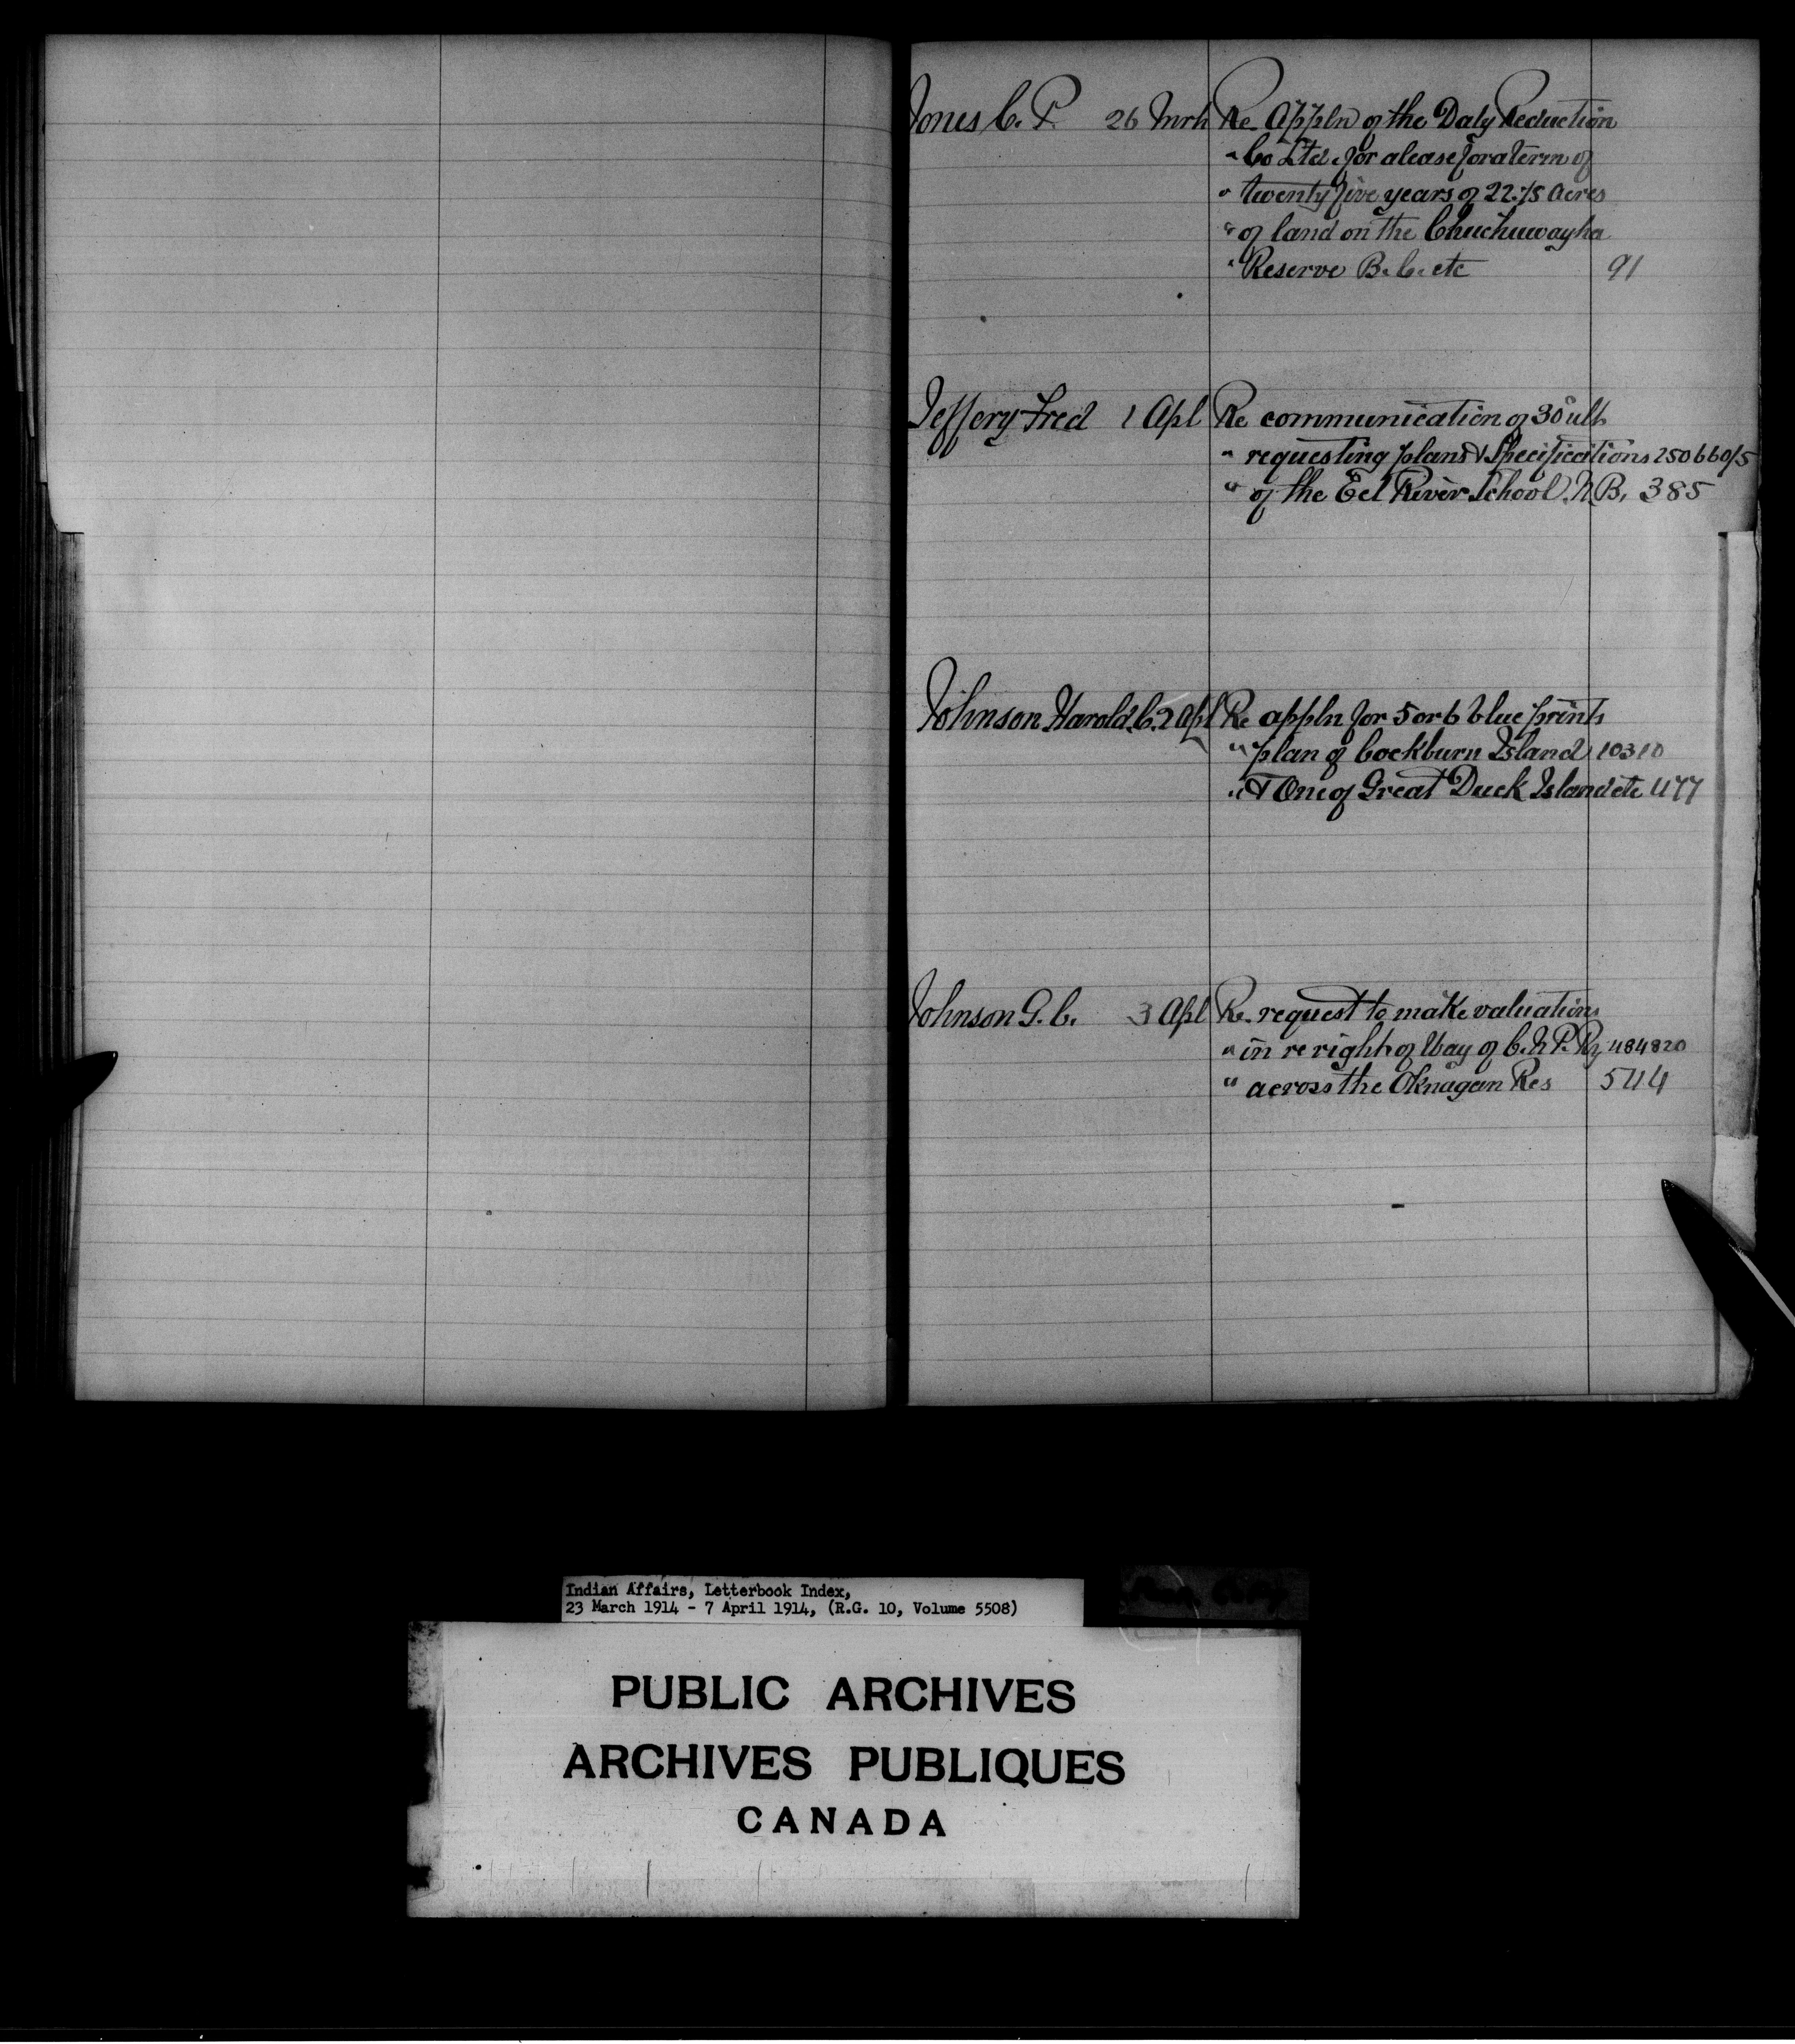 Jones C. P. 26 Mrh Re Appln of the Daly Reduction
" Co Ltd. for a lease for a term of
" twenty five years of 22.75 acres
" of land on the Chuchuwayha
" Reserve B.C. etc 91
Jeffery Fred 1 Apl Re communication of 30 ult
" requesting plans & Specifications 250660/5
" of the Eel River School. N.B. 385
Johnson Harold. C. 2 Apl Re appln for 5 or 6 blue prints
" plan of Cockburn Island 10310
" & One of Great Duck Island etc 477
Johnson G. C. 3 Apl Re request to make valuations
" in re right of Way of C. N. P. Ry 484820
" across the Oknagan Res 544
Indian Affairs, Letterbook Index,
23 March 1914 - 7 April 1914, (R.G. 10, Volume 5508)
PUBLIC ARCHIVES
ARCHIVES PUBLIQUES
CANADA